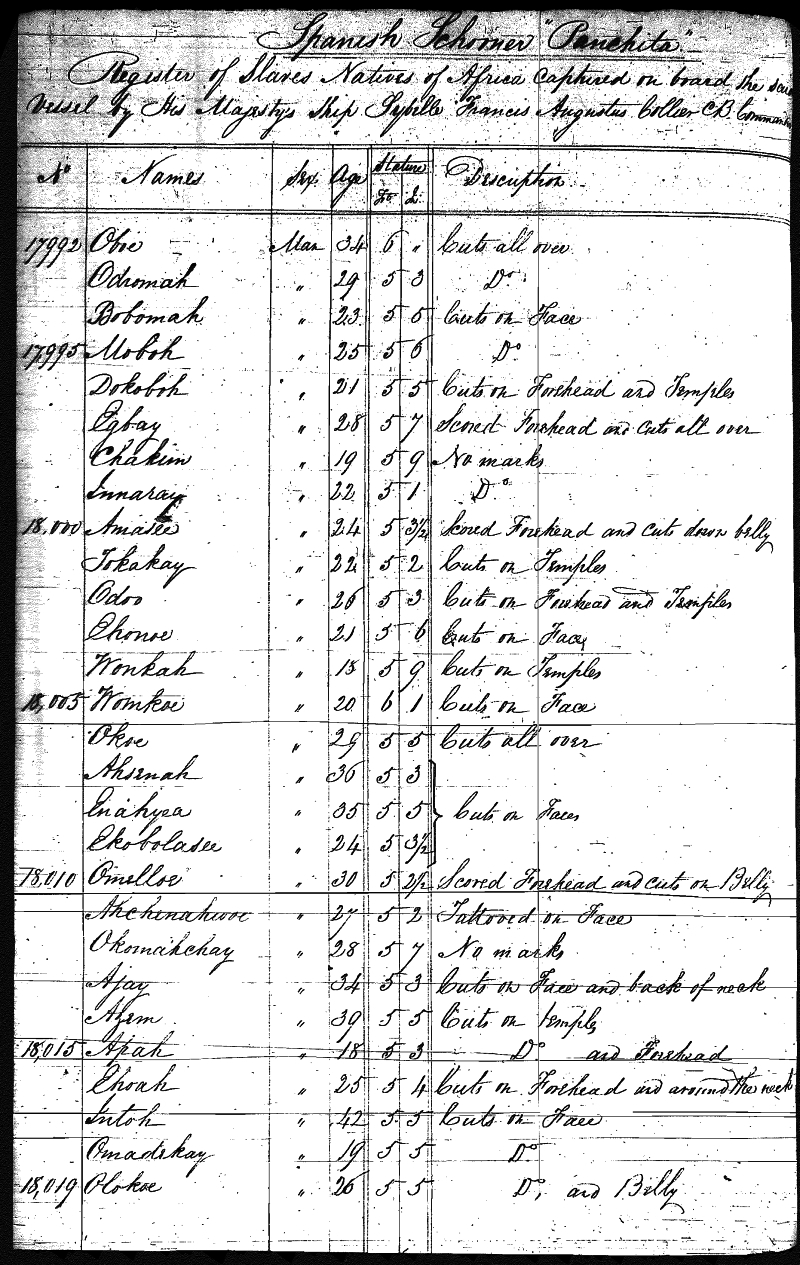 Spanish Schooner "Panchita"
Register of Slaves Natives of Africa captured on board the
Vessel by His Majestys Ship Sybille Francis Augustus Collier CB.
No Names Sex. Age Stature Description
Fo I.
17992 Oboe Man 34 6 " Cuts all over
Odromah " 29 5 3 Do
Bobomah " 23 5 5 Cuts on Face
17995 Moboh " 25 5 6 Do
Dokoboh " 21 5 5 Cuts on Forehead and Temples
Egbay " 28 5 7 Scored Forehead and cuts all over
Chakim " 19 5 9 No marks
Innaray " 22 5 1 Do
18,000 Amasee " 24 5 3½ Scored Forehead and cuts down belly
Tokakay " 22 5 2 Cuts on Temples
Odoo " 26 5 3 Cuts on Forehead and Temples
Ehonoe " 21 5 6 Cuts on Face
Wonkah " 18 5 9 Cuts on Temples
18,005 Womkoe " 20 6 1 Cuts on Face
Okoe " 29 5 5 Cuts all over
Ahsenah " 36 5 3
Enahyea " 35 5 5 Cuts on Faces
Ekobolasee " 24 5 3½
18,010 Omelloe " 30 5 2½ Scored Forehead and cuts on Belly
Ahchenahwoe " 27 5 2 Tattooed on Face
Okomahchay " 28 5 7 No marks
Ajay " 34 5 3 Cuts on Face and back of neck
Azem " 39 5 5 Cuts on temples
18,015 Apah " 18 5 3 Do and Forehead
Ehoah " 25 5 4 Cuts on Forehead and around the neck
Intoh " 42 5 5 Cuts on Face
Omadekay " 19 5 5 Do
18,019 Olokoe " 26 5 5 Do, and Belly